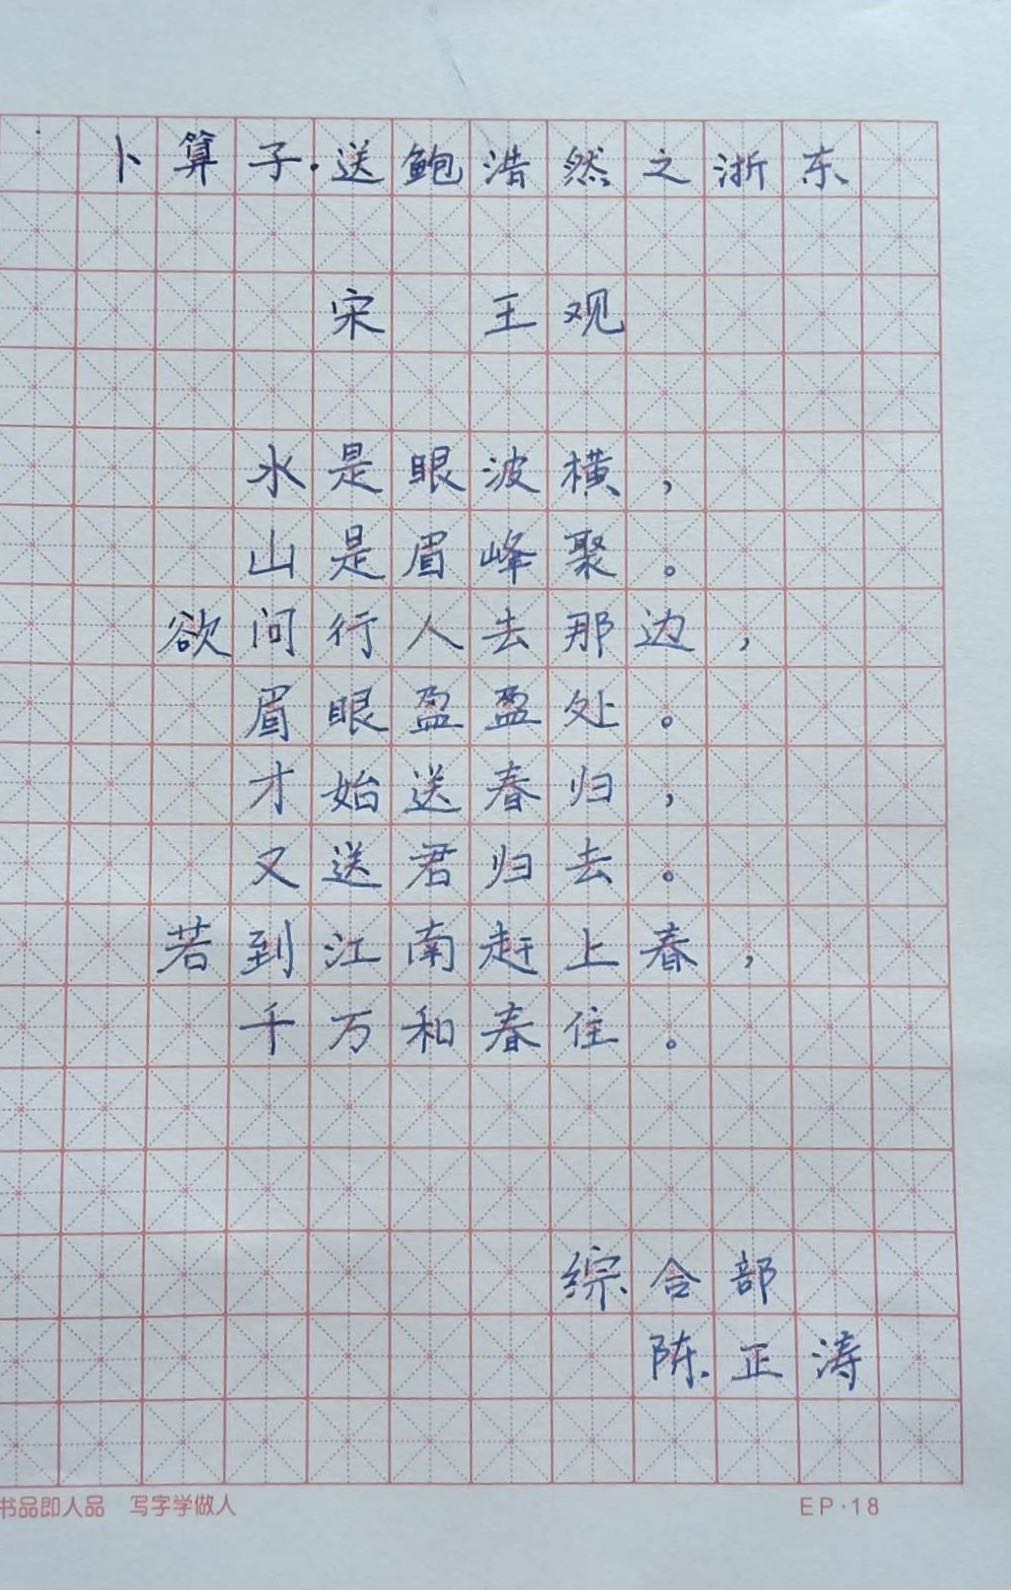 卜算子·送鲍浩然之浙东
宋 王观
水是眼波横，
山是眉峰聚。
欲问行人去那边，
眉眼盈盈处。
才始送春归，
又送君归去。
若到江南赶上春，
千万和春住。
综合部
陈正涛
书品即人品 写字学做人 EP·18